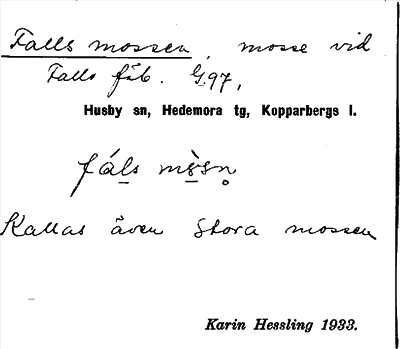 Falls mossen, mosse vid
Falls fäb. G97,
Husby sn, Hedemora tg, Kopparbergs l.
fáls mòsn̥
Kallas även Stora mossen
Karin Hessling 1933.